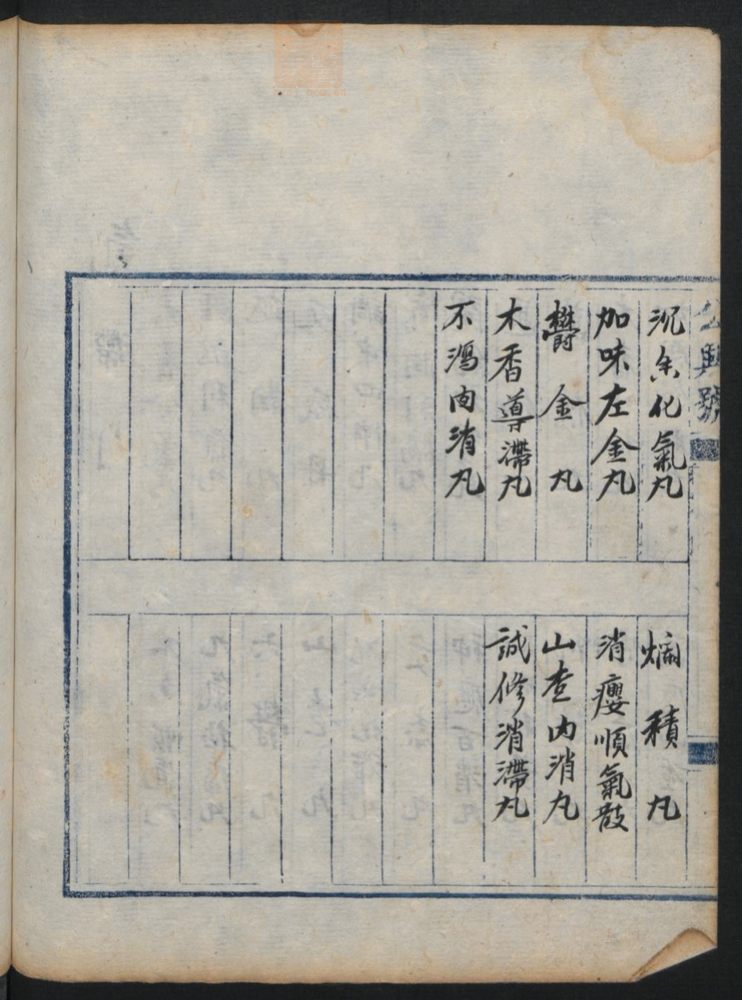 沉香化氣丸
加味左金丸
欝金丸
木香導滯丸
不瀉內消丸
爛積丸
消癭順氣散
山查內消丸
誠修消滯丸